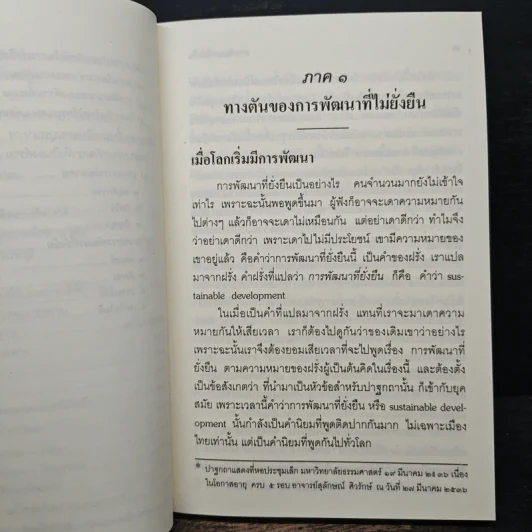 ภาค ๑
ทางตันของการพัฒนาที่ไม่ยั่งยืน
เมื่อโลกเริ่มมีการพัฒนา
การพัฒนาที่ยั่งยืนเป็นอย่างไร คนจำนวนมากยังไม่เข้าใจ
เท่าไร เพราะฉะนั้นพอพูดขึ้นมา ผู้ฟังก็อาจจะเดาความหมายกัน
ไปต่างๆ แล้วก็อาจจะเดาไม่เหมือนกัน แต่อย่าเดาดีกว่า ทำไมจึง
ว่าอย่าเดาดีกว่า เพราะเดาไปไม่มีประโยชน์ เขามีความหมายของ
เขาอยู่แล้ว คือคำว่าการพัฒนาที่ยั่งยืนนี้ เป็นคำของฝรั่ง เราแปล
มาจากฝรั่ง คำฝรั่งที่แปลว่า การพัฒนาที่ยั่งยืน ก็คือ คำว่า sus-
tainable development
ในเมื่อเป็นคำที่แปลมาจากฝรั่ง แทนที่เราจะมาเดาความ
หมายกันให้เสียเวลา เราก็ต้องไปดูกันว่าของเดิมเขาว่าอย่างไร
เพราะฉะนั้นเราจึงต้องยอมเสียเวลาที่จะไปพูดเรื่อง การพัฒนาที่
ยั่งยืน ตามความหมายของฝรั่งผู้เป็นต้นคิดในเรื่องนี้ และต้องตั้ง
เป็นข้อสังเกตว่า ที่นำมาเป็นหัวข้อสำหรับปาฐกถานั้น ก็เข้ากับยุค
สมัย เพราะเวลานี้คำว่าการพัฒนาที่ยั่งยืน หรือ sustainable devel-
opment นั้นกำลังเป็นคำนิยมที่พูดติดปากกันมาก ไม่เฉพาะเมือง
ไทยเท่านั้น แต่เป็นคำนิยมที่พูดกันไปทั่วโลก
* ปาฐกถาแสดงที่หอประชุมเล็ก มหาวิทยาลัยธรรมศาสตร์ ๑๙ มีนาคม ๒๕๓๖ เนื่อง
ในโอกาสอายุ ครบ ๕ รอบ อาจารย์สุลักษณ์ ศิวรักษ์ ณ วันที่ ๒๗ มีนาคม ๒๕๓๖